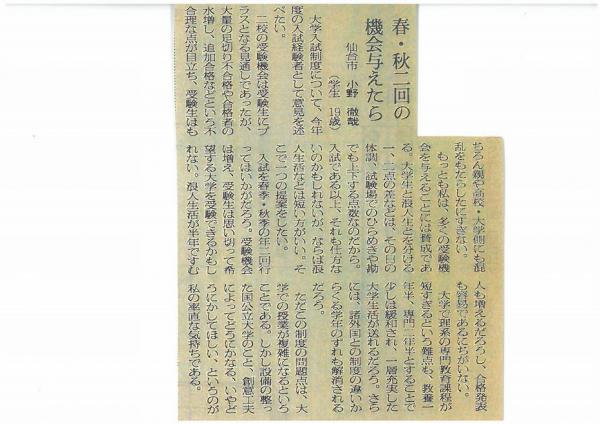 春・秋二回の
機会与えたら
仙台市 小野 徹哉
(学生 19歳)
大学入試制度について、今年
度の入試経験者として意見を述
べたい。
二校の受験機会は受験生にプ
ラスとなる見通しであったが、
大量の足切り不合格や合格者の
水増し、追加合格などという不
合理な点が目立ち、受験生はも
ちろん親や高校・大学側にも混
乱をもたらしたにすぎない。
もっとも私は、多くの受験機
会を与えることには賛成であ
る。大学生と浪人生とを分ける
一、二点の差などは、その日の
体調、試験場でのひらめきや勘
でも上下する点数なのだから。
入試である以上、それも仕方な
いのかもしれないが、ならば浪
人生活などは短い方がいい。そ
こで一つの提案をしたい。
入試を春季・秋季の年二回行
ってはいかがだろう。受験機会
は増え、受験生は思い切って希
望する大学を受験できるかもし
れない。浪人生活が半年ですむ
人も増えるだろうし、合格発表
も容易であるにちがいない。
大学で理系の専門教育課程が
短すぎるという難点も、教養一
年半、専門二年半とすることで
少しは緩和され、一層充実した
大学生活が送れるだろう。さら
には、諸外国との制度の違いか
らくる学年のずれも解消される
だろう。
ただこの制度の問題点は、大
学での授業が複雑になるという
ことである。しかし設備の整っ
た国公立大学のこと、創意工夫
によってどうにかなる、いやど
うにかしてほしい、というのが
私の率直な気持ちである。